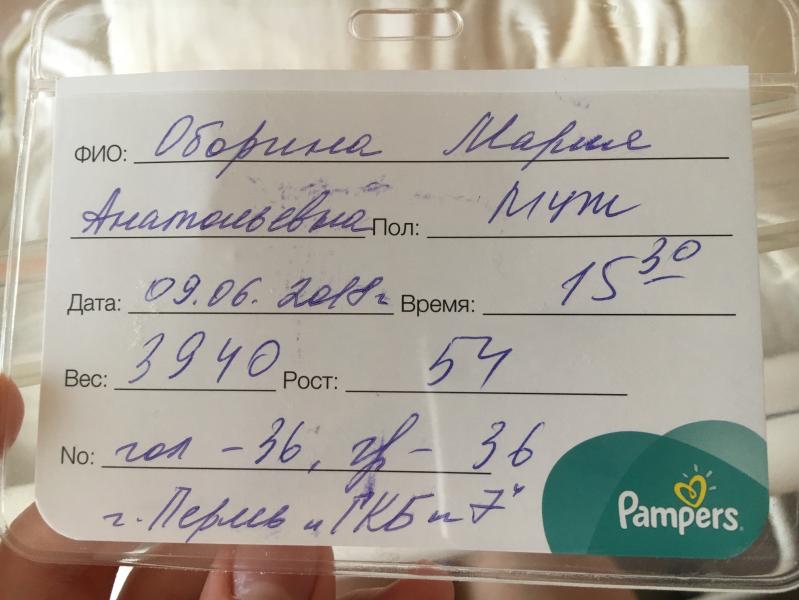 ФИО: Оборина Мария
Анатольевна Пол: муж
Дата: 09.06.2018г Время: 15 30
Вес: 3940 Рост: 54
No: гол - 36, гр - 36
г. Пермь "ГКБ n 7"
Pampers